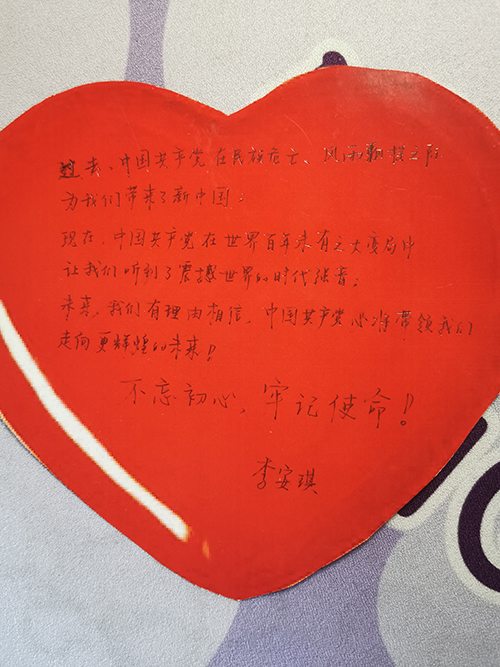 过去，中国共产党在民族危亡、风雨飘摇之际
为我们带来了新中国。
现在，中国共产党在世界百年未有之大变局中
让我们听到了震撼世界的时代强音；
未来，我们有理由相信，中国共产党必将带领我们
走向更辉煌的未来！
不忘初心，牢记使命！
李安琪